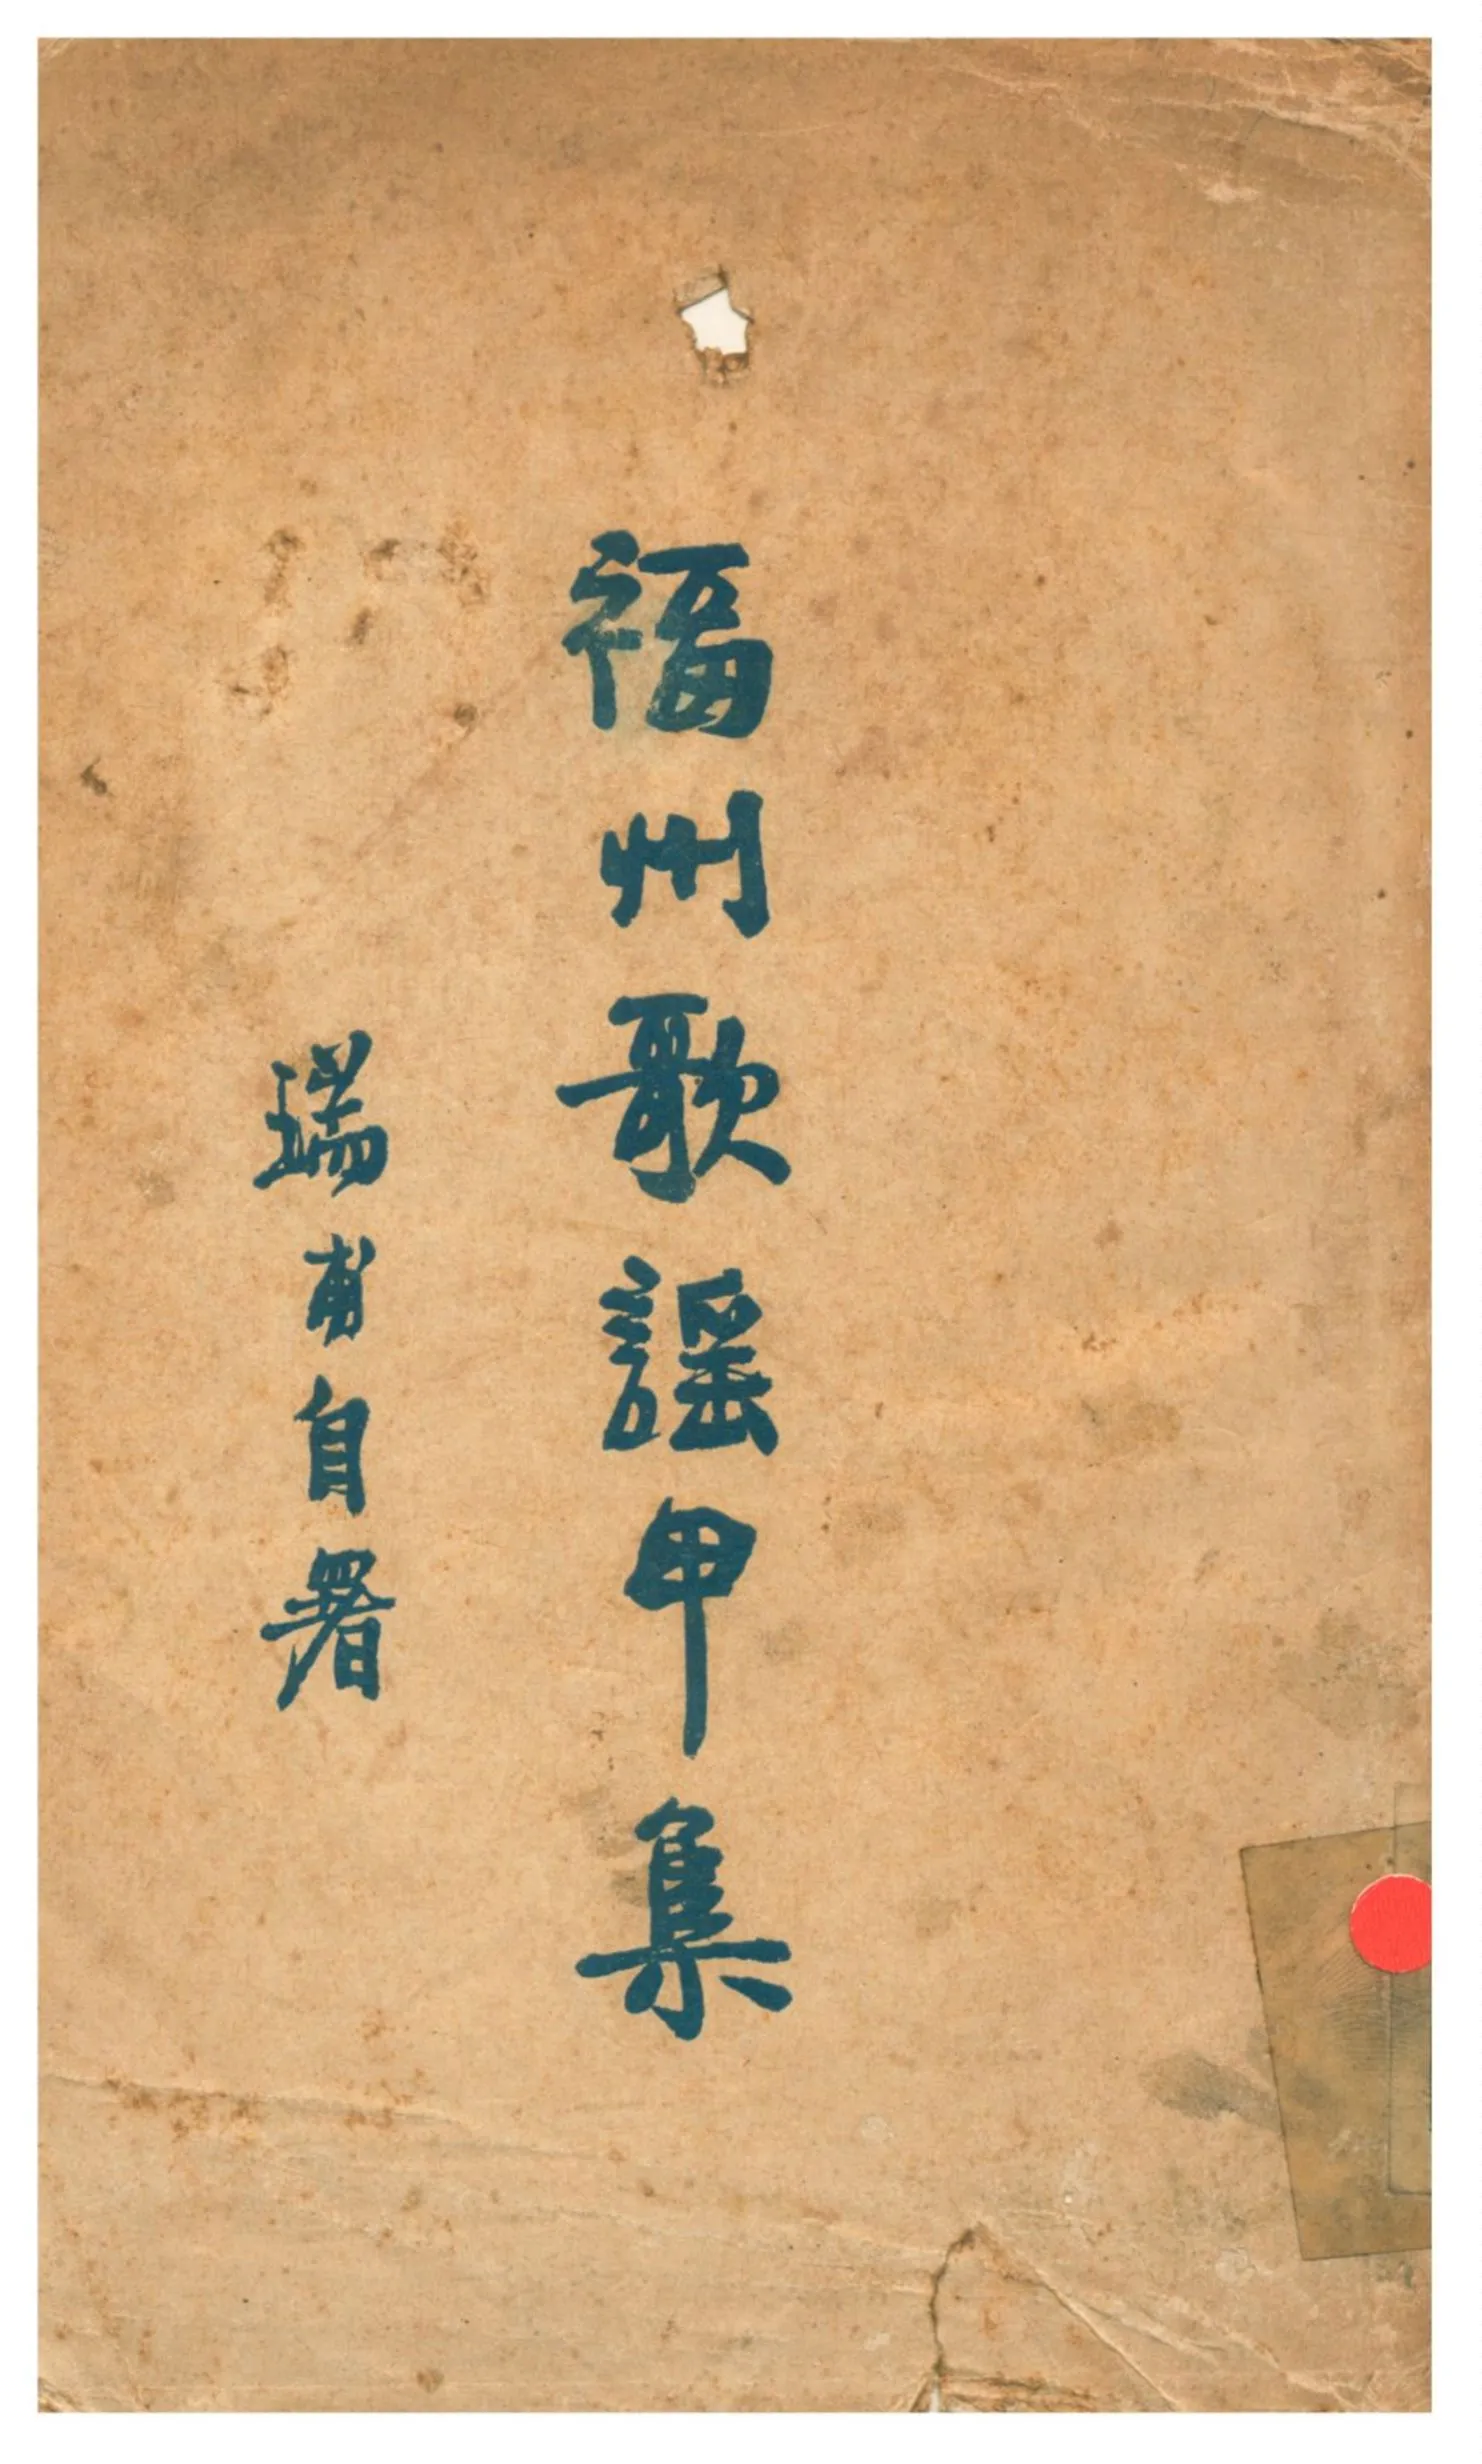 福州歌謡甲集
瑞甫自署